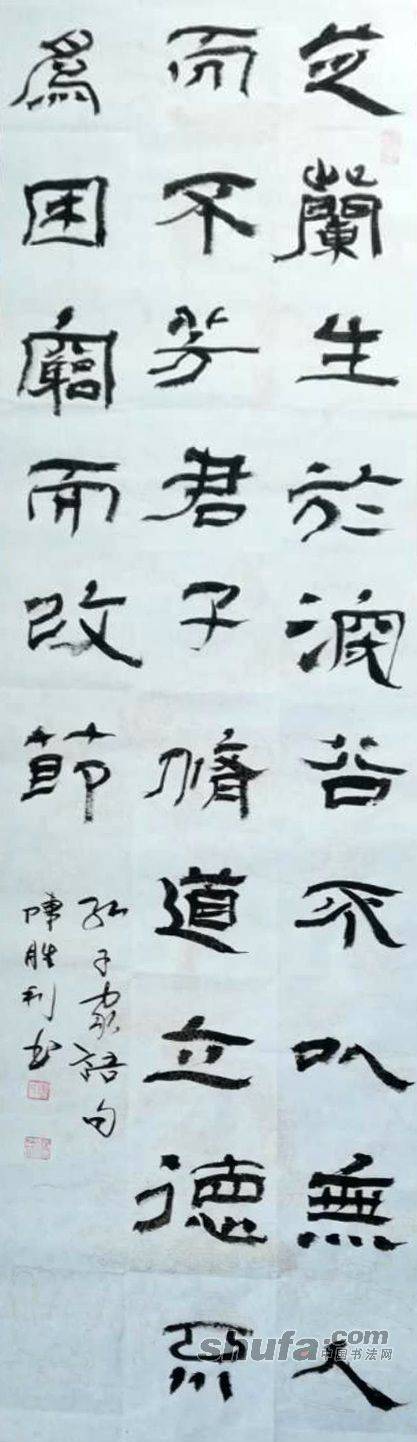 芝蘭生於深谷不以無人
而不芳君子脩道立德不
爲困窮而改節
孔子家語句
陳胜利书
shufa.com
中国书法网